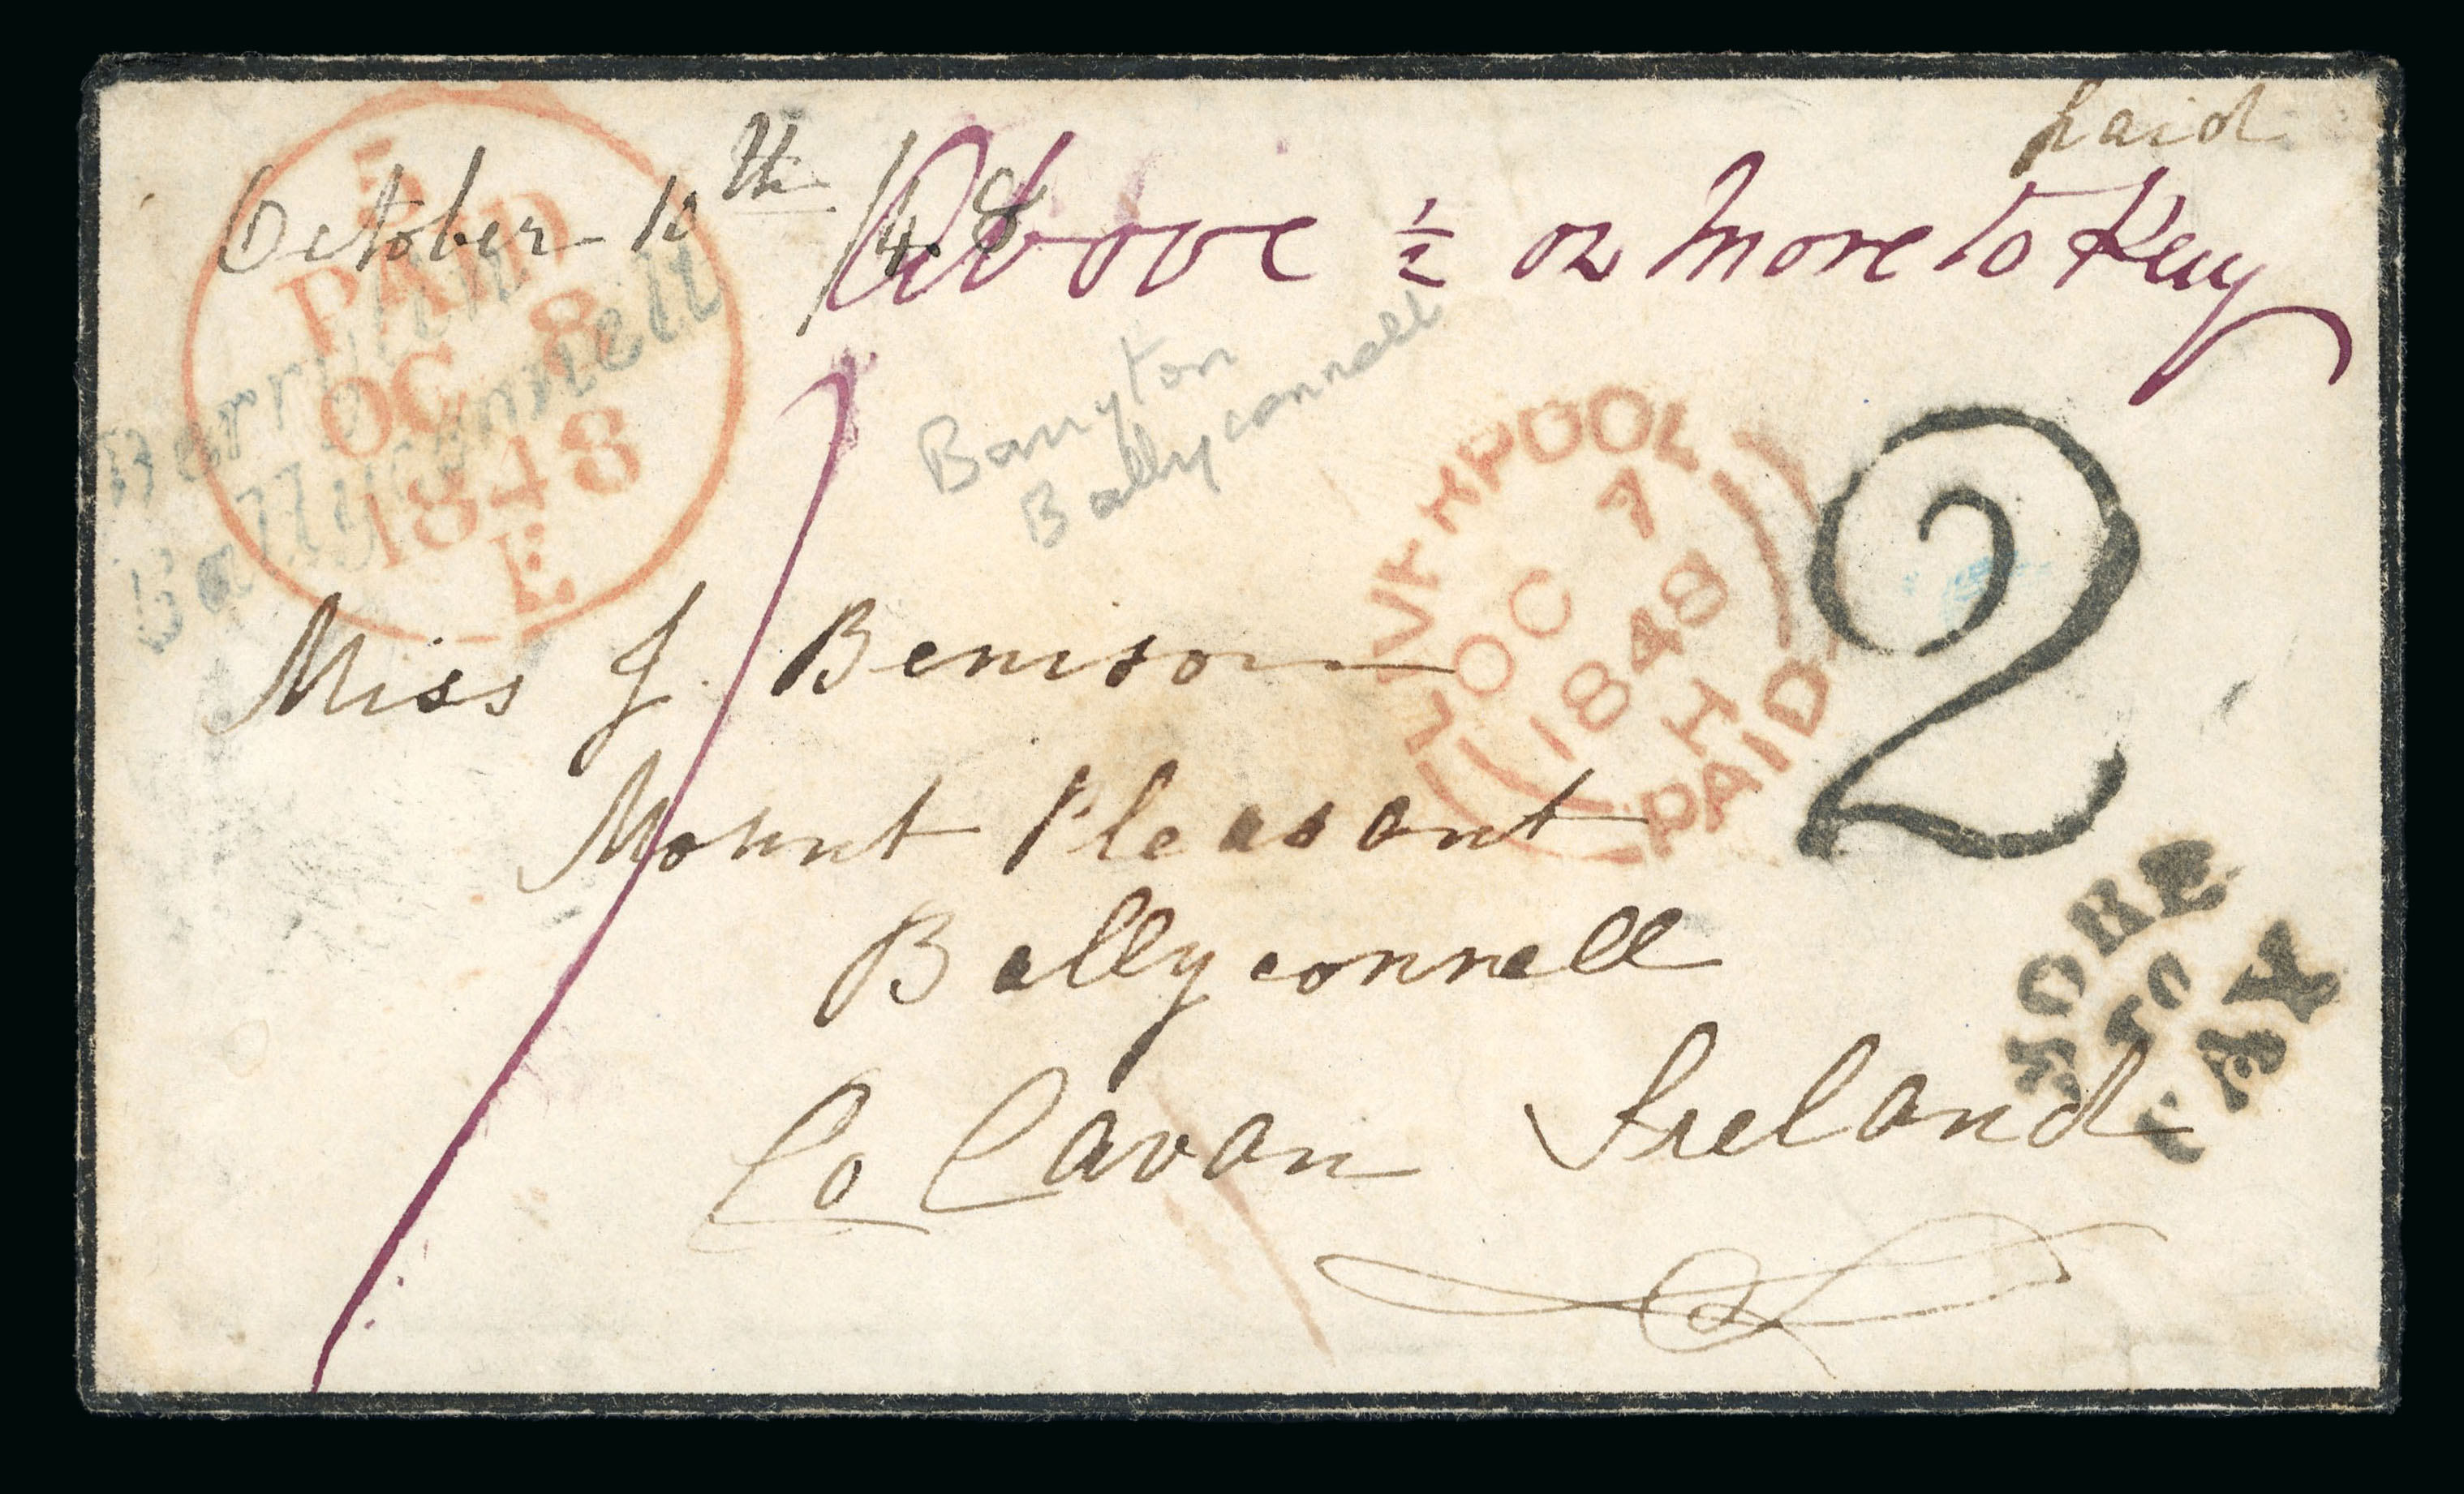 paid
October 10th /48
Above ½ oz More to Pay
5
PAID
OC 8
1848
E
Derrylin
Ballyconnell
Ballyconnell
LIVERPOOL
A
OC 7
1848
H
PAID
2
Miss J. Benison
Mount Pleasant
Ballyconnell
Co Cavan Ireland
MORE
TO
PAY